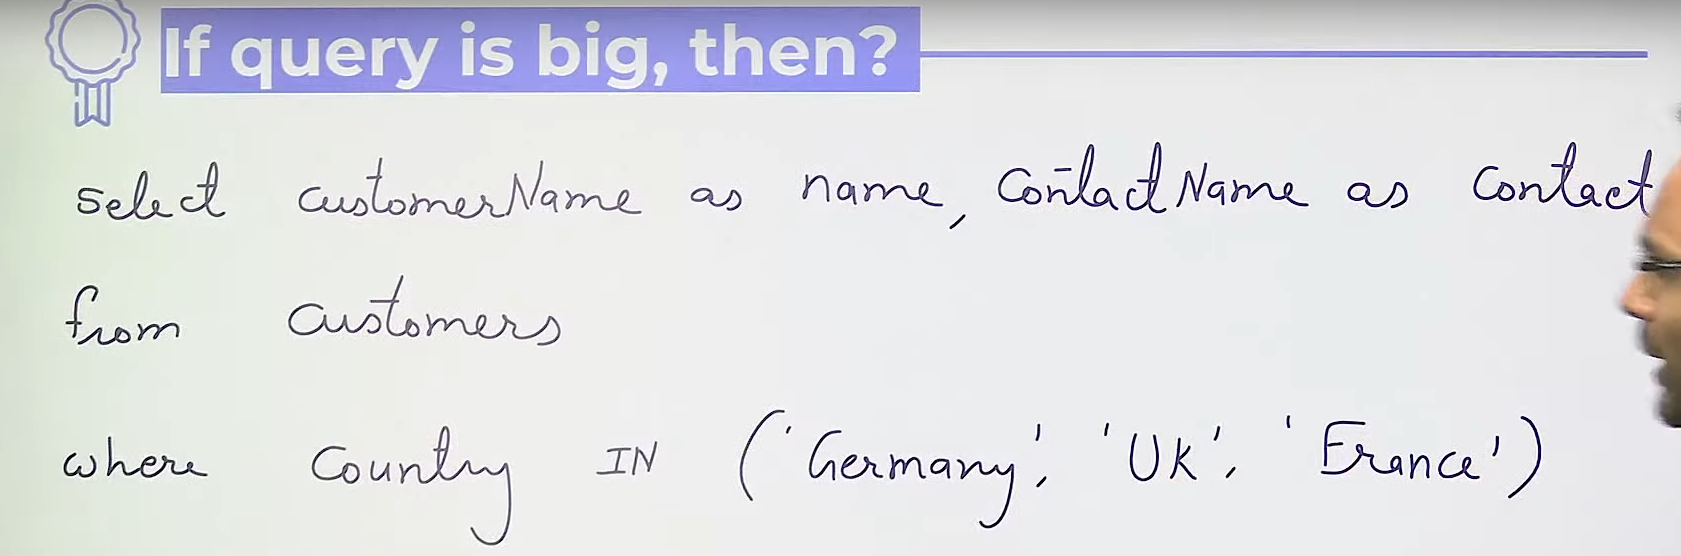 If query is big, then?
select customerName as name, ContactName as Contact
from customers
where Country IN ('Germany', 'UK', 'France')